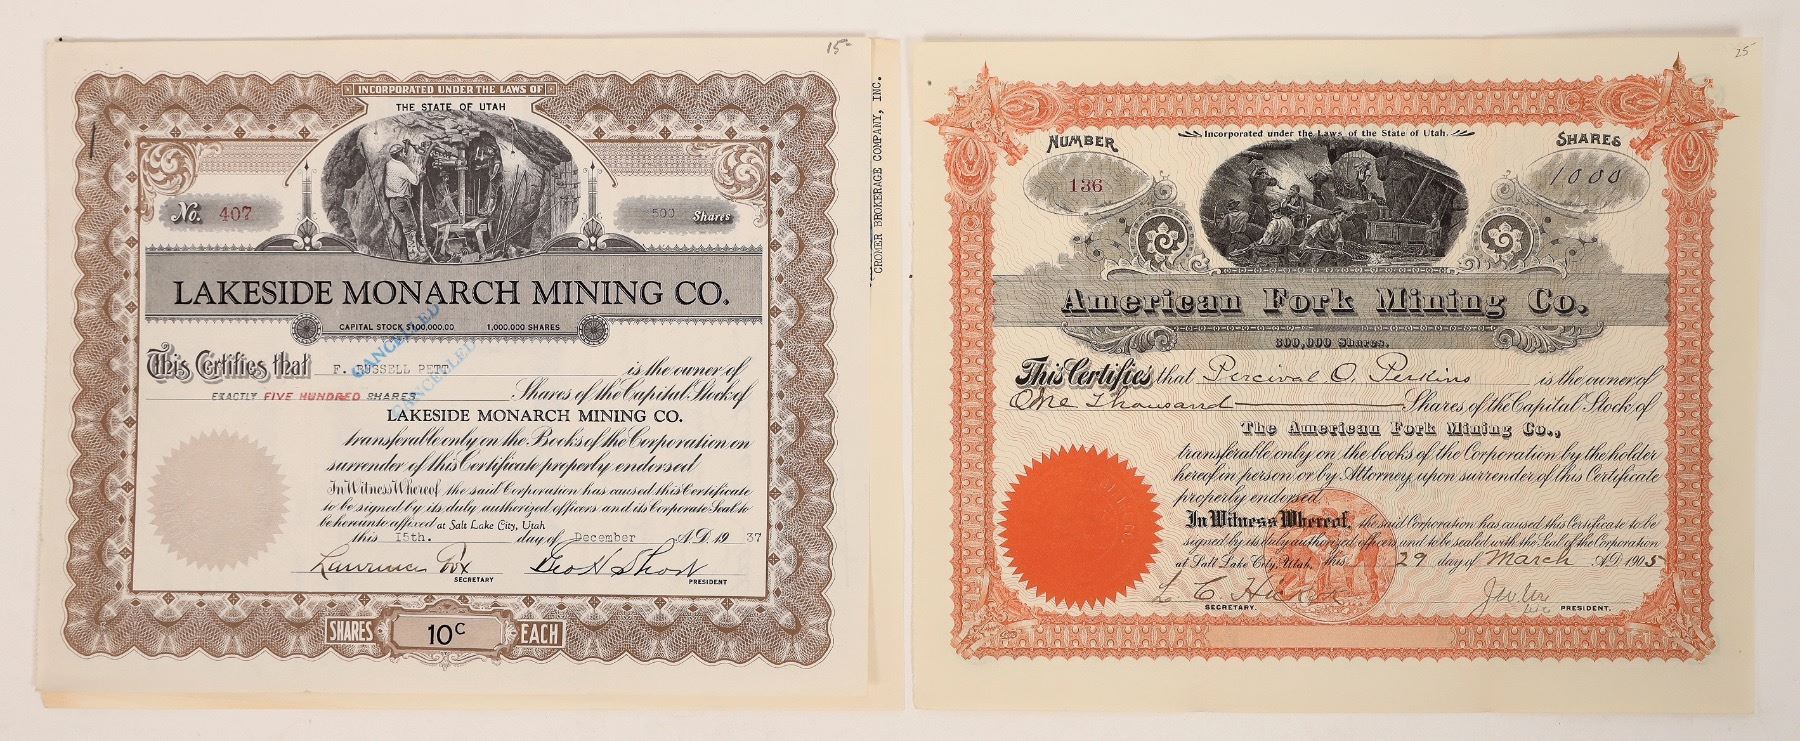 15-
INCORPORATED UNDER THE LAWS OF
THE STATE OF UTAH
No. 407
500 Shares
LAKESIDE MONARCH MINING CO.
CAPITAL STOCK $100,000.00 1,000,000 SHARES
CANCELLED
CANCELLED
This Certifies that F. RUSSELL PETT is the owner of
EXACTLY FIVE HUNDRED SHARES Shares of the Capital Stock of
LAKESIDE MONARCH MINING CO.
transferable only on the Books of the Corporation on
surrender of this Certificate properly endorsed
In Witness Whereof, the said Corporation has caused this Certificate
to be signed by its duly authorized officers and its Corporate Seal to
be hereunto affixed at Salt Lake City, Utah
this 15th. day of December A.D. 19 37
Lawrence Fox Geo H Short
SECRETARY PRESIDENT
SHARES 10c EACH
CROMER BROKERAGE COMPANY, INC.
25
Incorporated under the Laws of the State of Utah.
NUMBER SHARES
136 1000
American Fork Mining Co.
300,000 Shares.
This Certifies that Percival O. Perkins is the owner of
One Thousand Shares of the Capital Stock of
The American Fork Mining Co.,
transferable only on the books of the Corporation by the holder
hereof in person or by Attorney, upon surrender of this Certificate
properly endorsed.
In Witness Whereof, the said Corporation has caused this Certificate to be
signed by its duly authorized officers and to be sealed with the Seal of the Corporation
at Salt Lake City, Utah, this 29 day of March A.D. 1905
L. C.
SECRETARY. PRESIDENT.